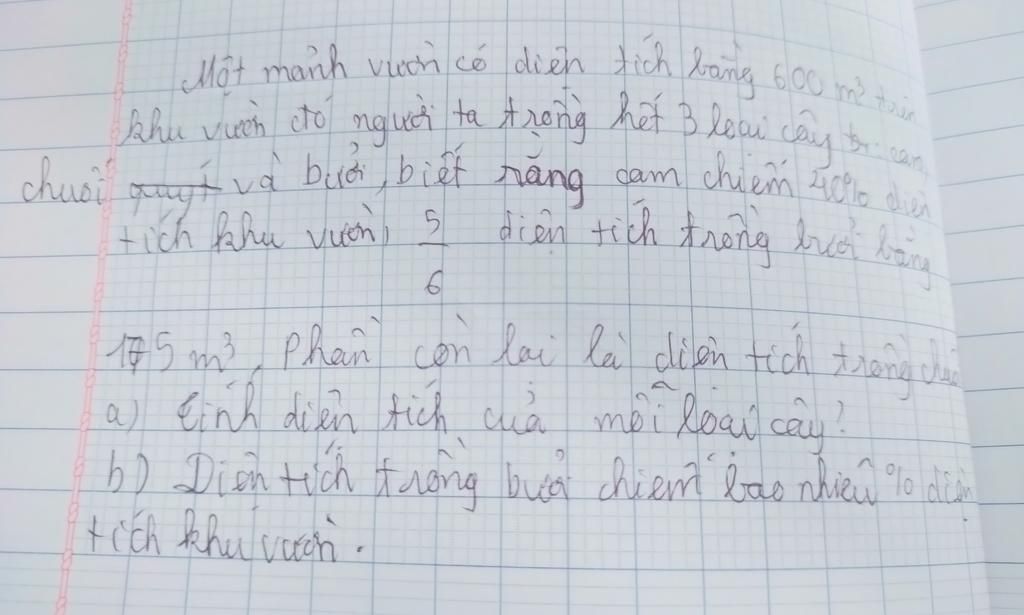 Một mảnh vườn có diện tích bằng 600 m³ trên
khu vườn đó người ta trồng hết 3 loại cây cam
chuối quýt và bưởi, biết rằng cam chiếm 40% diện
tích khu vườn, 5/6 diện tích trồng bưởi bằng
175 m³, Phần còn lại là diện tích trồng
a) tính diện tích của mỗi loại cây?
b) Diện tích trồng bưởi chiếm bao nhiêu % diện
tích khu vườn.